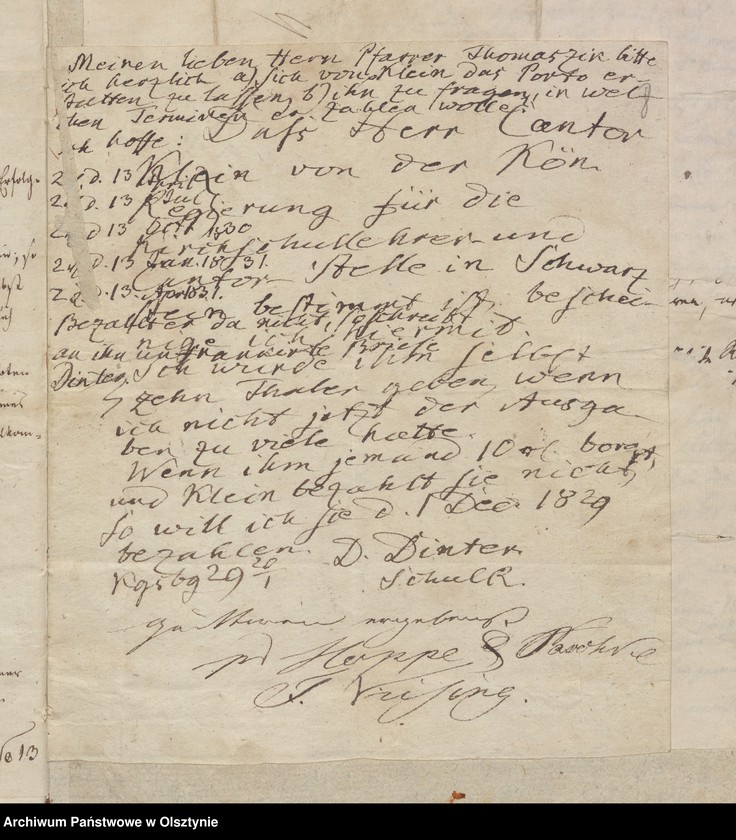 Meinen lieben Herrn Pfarrer Thomaszik bitte
ich herzlich a) sich von Klein das Porto er-
statten zu lassen, b) ihn zu fragen, in wel-
chen Terminen er zahlen wolle.
Ich hoffe:
2 d. 13 April
2 d. 13 Juli
2 d. 13 Octb 1830
2 d. 13 Jan. 1831.
2 d. 13. April 31.
Bezahlt er da nicht, so schreibt
an ihn unfrankirte Briefe
Dinter.
Daß Herr Cantor
Klein von der Kön.
Regierung für die
Kirchschullehrer- und
Cantor-Stelle in Schwarz
stein bestimmt ist, beschei-
nige ich hiermit.
Ich würde ihm selbst
zehn Thaler geben, wenn
ich nicht jetzt der Ausga-
ben zu viele hätte.
Wenn ihm jemand 10 rl. borgt,
und Klein bezahlt sie nicht,
so will ich sie d. 1 Dec. 1829
bezahlen. D. Dinter
Kgsbg 29 20/1 SchulR.
quittiren ergebenst
pr Hoppe &
J. Krising.
Erfolg-
No 13
Archiwum Państwowe w Olsztynie